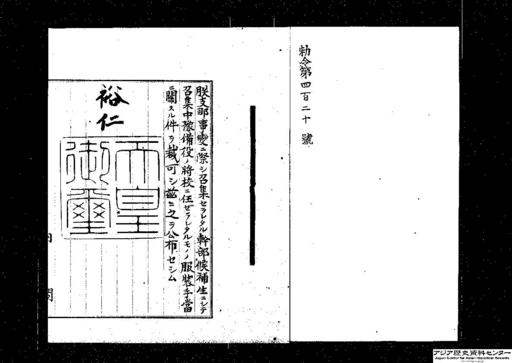 勅令第四百二十號
朕支那事變ニ際シ召集セラレタル幹部候補生ニシテ
召集中豫備役ノ將校ニ任ゼラレタルモノノ服裝手當
ニ關スル件ヲ裁可シ茲ニ之ヲ公布セシム
裕仁
天皇
御璽
内閣
アジア歴史資料センター
Japan Center for Asian Historical Records